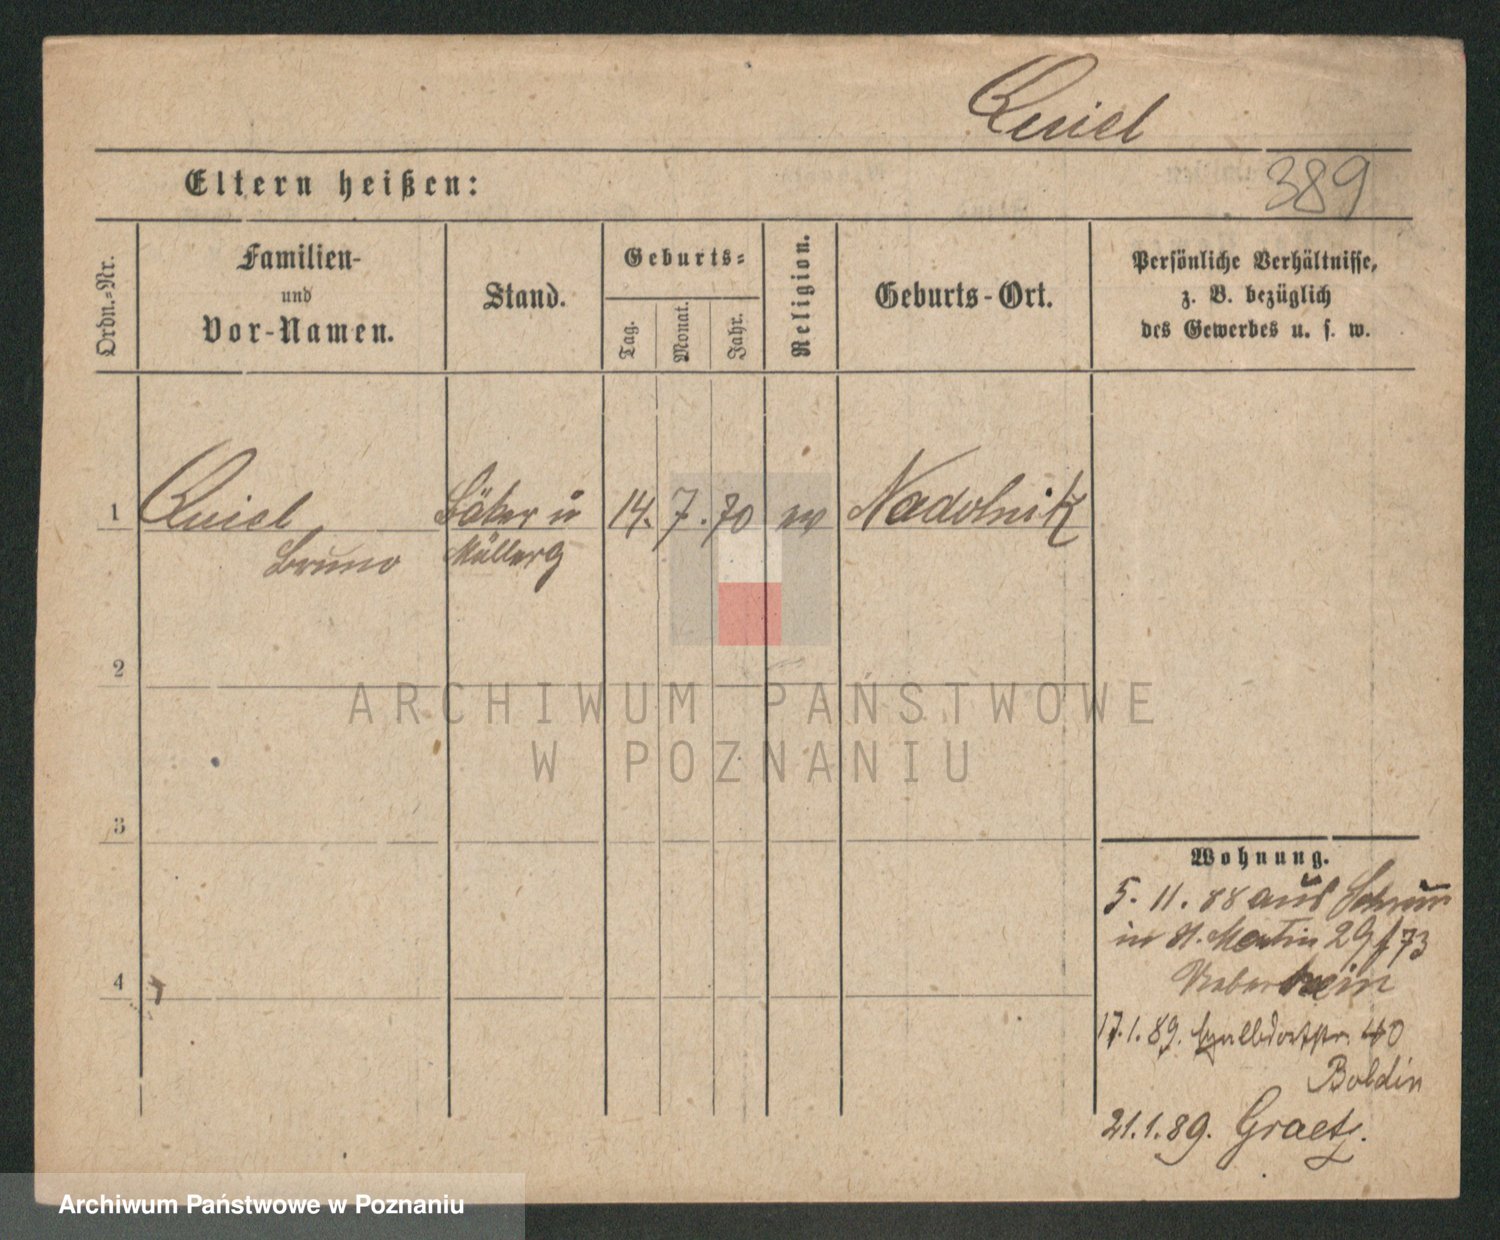 Quiel
389
Eltern heißen:
Ordn.-Nr.
Familien-
und
Vor-Namen.
Stand.
Geburts-
Tag.
Monat.
Jahr.
Religion.
Geburts-Ort.
Persönliche Verhältnisse,
z. B. bezüglich
des Gewerbes u. s. w.
1 Quiel Bäker u 14. 7. 70 ev Nadolnik
Bruno Müllerg
2
ARCHIWUM PAŃSTWOWE
W POZNANIU
3
Wohnung.
5. 11. 88 aus
in St. Martin 29 f 73
4
17.1.89. 40
Boldin
21.1.89. Graetz.
Archiwum Państwowe w Poznaniu